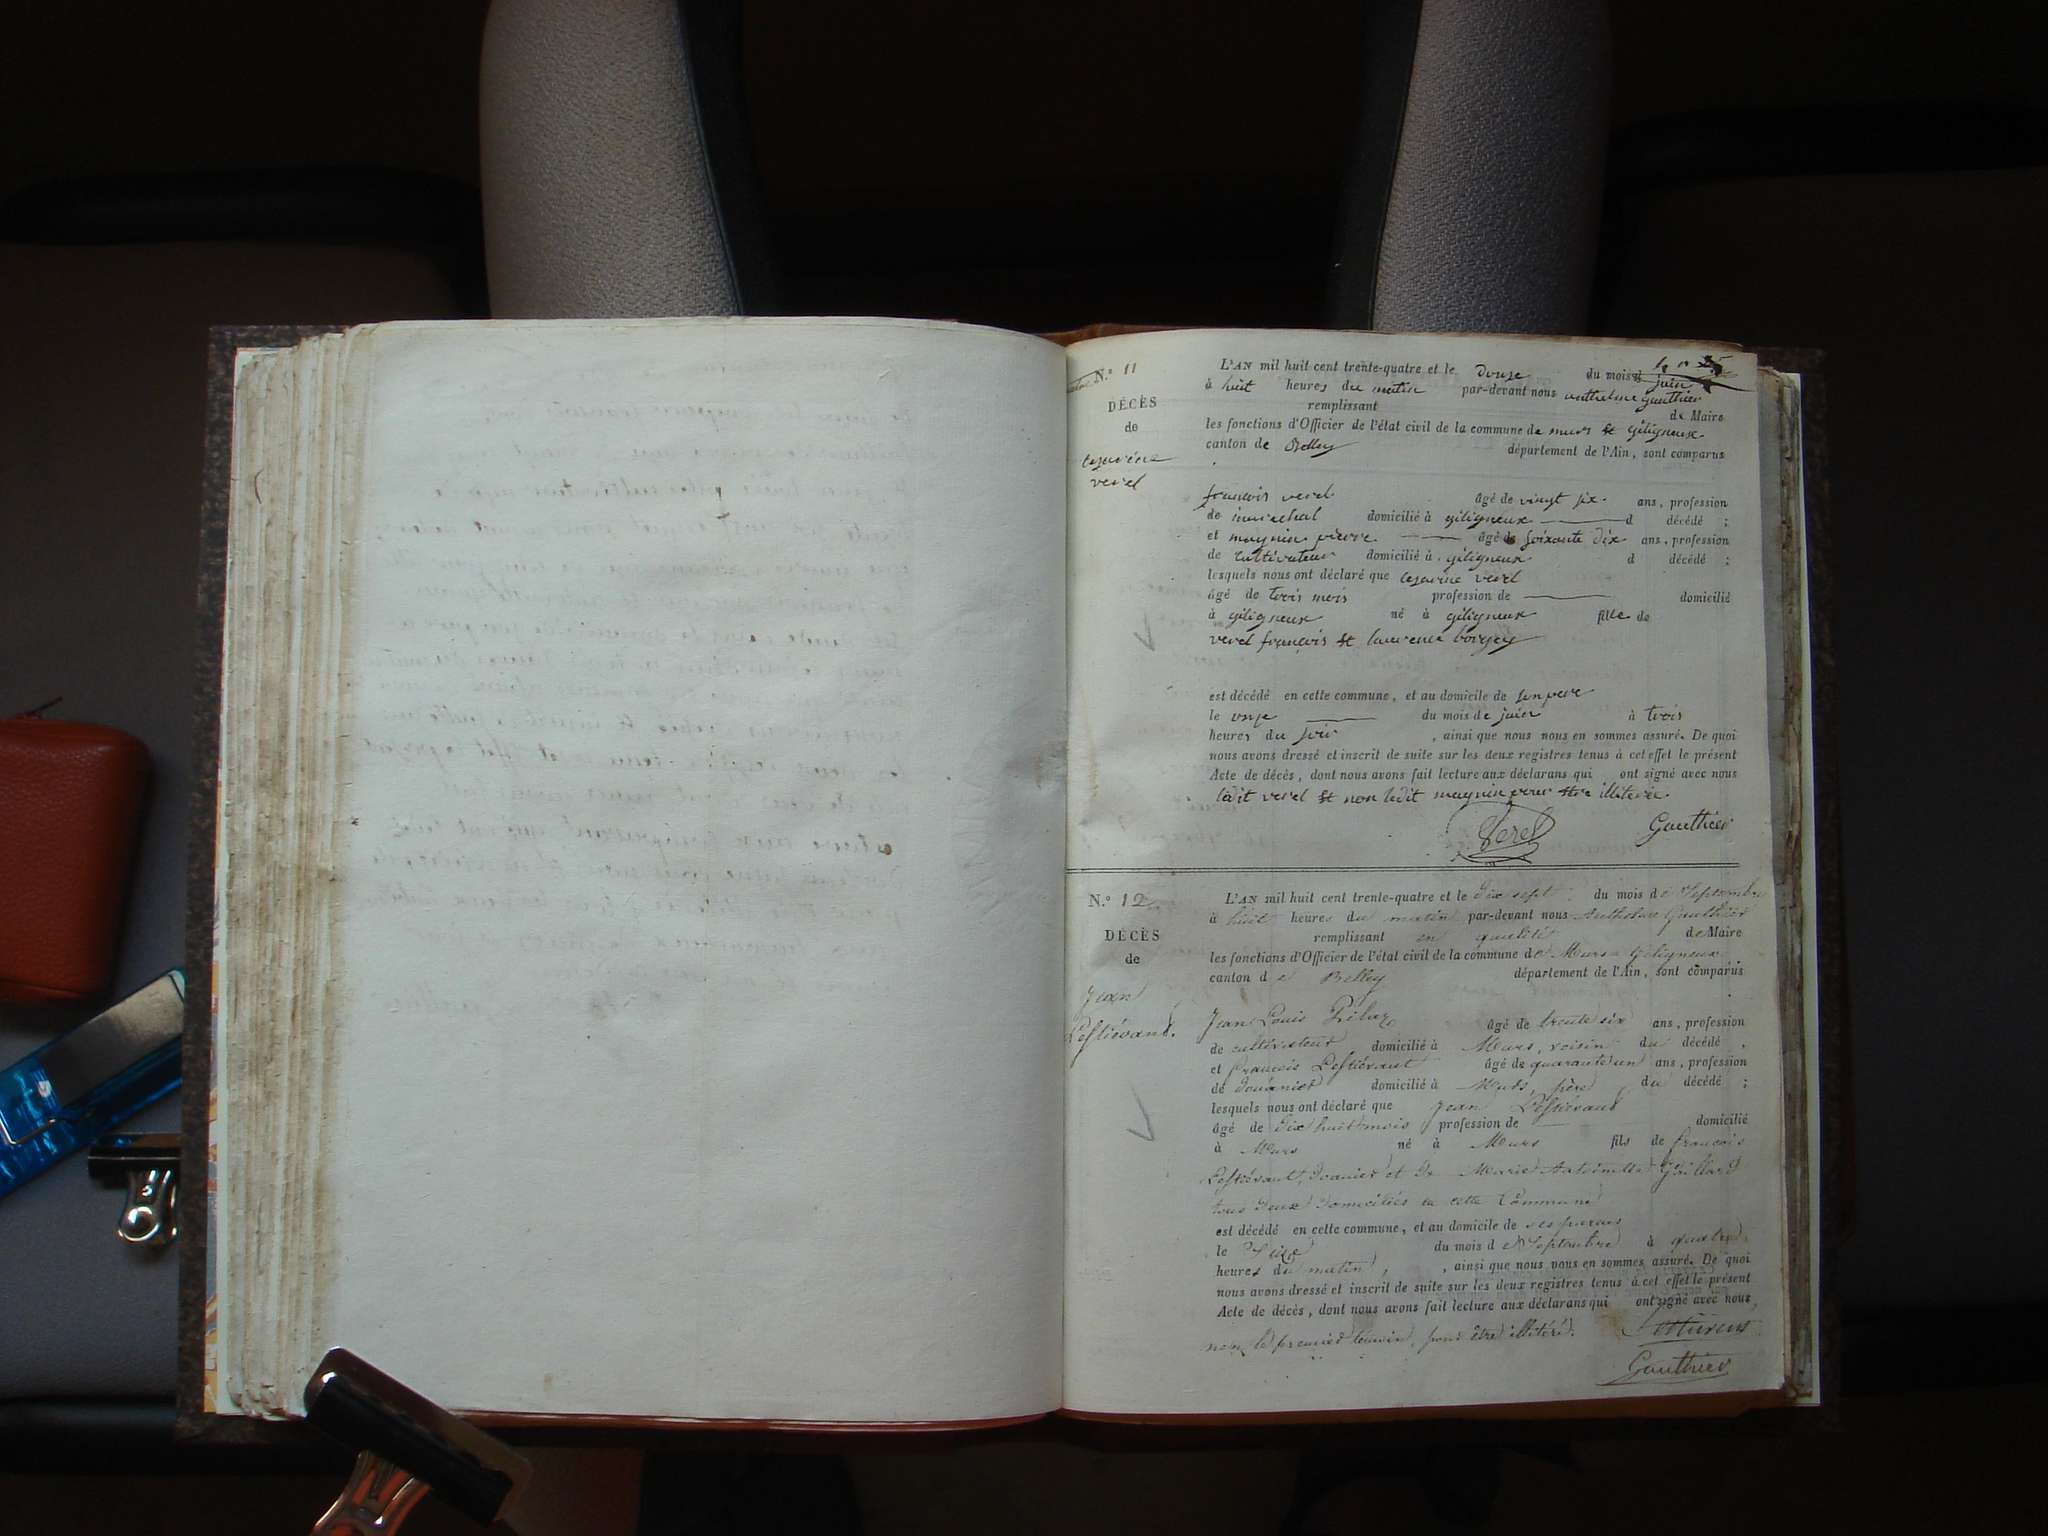 N.° 11
DÉCÈS
de
cezarine
verel
L'AN mil huit cent trente-quatre et le douze du mois d juin
à huit heures du matin par-devant nous anthelme gauthier
remplissant de Maire
les fonctions d'Officier de l'état civil de la commune de murs et géligneux
canton de Belley département de l'Ain, sont comparus
françois verel âgé de vingt six ans, profession
de marechal domicilié à géligneux d décédé ;
et magnin pierre âgé de soixante dix ans, profession
de cultivateur domicilié à géligneux d décédé ;
lesquels nous ont déclaré que cezarine verel
âgé de trois mois profession de domicilié
à géligneux né à géligneux fille de
verel françois et laurence borgey
est décédé en cette commune, et au domicile de son pere
le onze du mois de juin à trois
heures du soir , ainsi que nous nous en sommes assuré. De quoi
nous avons dressé et inscrit de suite sur les deux registres tenus à cet effet le présent
Acte de décès, dont nous avons fait lecture aux déclarans qui ont signé avec nous
ledit verel et non ledit magnin pour être illiterée.
Verel Gauthier
N.° 12
DÉCÈS
de
Jean
Lestiévant.
L'AN mil huit cent trente-quatre et le dix sept du mois de Septembre
à huit heures du matin par-devant nous Anthelme Gauthier
remplissant en qualité de Maire
les fonctions d'Officier de l'état civil de la commune de Murs Géligneux
canton de Belley département de l'Ain, sont comparus
Jean Louis âgé de trente six ans, profession
de cultivateur domicilié à Murs, voisin du décédé ,
et françois Lestiévant âgé de quarante un ans, profession
de douanier domicilié à Murs, père du décédé ;
lesquels nous ont déclaré que Jean Lestiévant
âgé de dix huit mois profession de domicilié
à Murs né à Murs fils de françois
Lestiévant, Douanier et de Marie Antoinette Gaillard
tous deux domiciliés en cette Commune
est décédé en cette commune, et au domicile de ses parens
le Seize du mois de Septembre à quatre
heures du matin , , ainsi que nous nous en sommes assuré. De quoi
nous avons dressé et inscrit de suite sur les deux registres tenus à cet effet le présent
Acte de décès, dont nous avons fait lecture aux déclarans qui ont signé avec nous,
non le premier temoin, pour être illitéré.
Gauthier